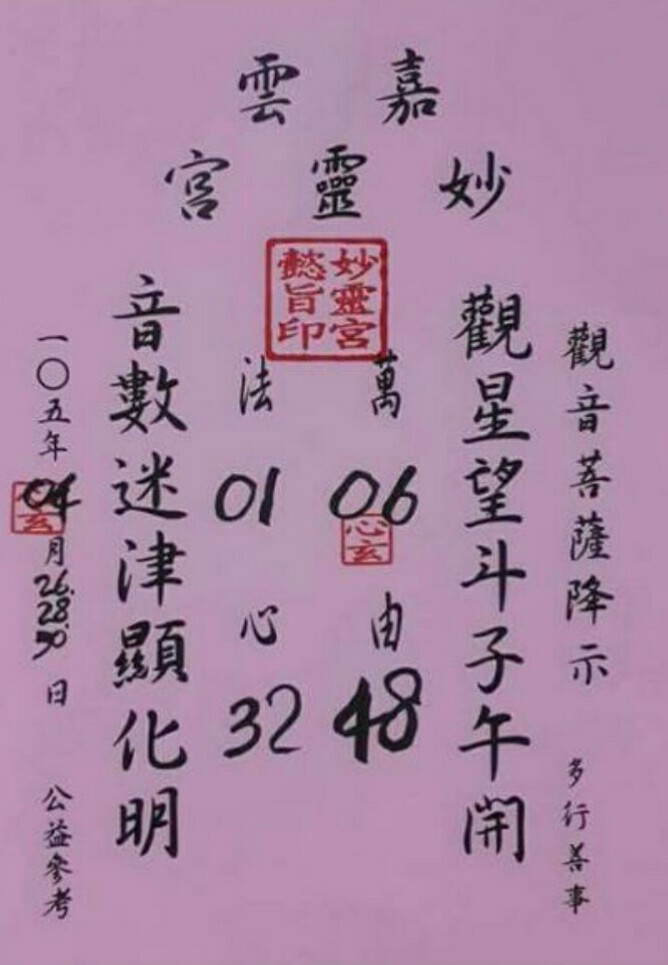 嘉雲
妙靈宮
妙靈宮
懿旨印
觀音菩薩降示 多行善事
觀星望斗子午開
萬 06 由 48
心玄
法 01 心 32
音數迷津顯化明
一〇五年04月26.28.30日 公益參考
玄